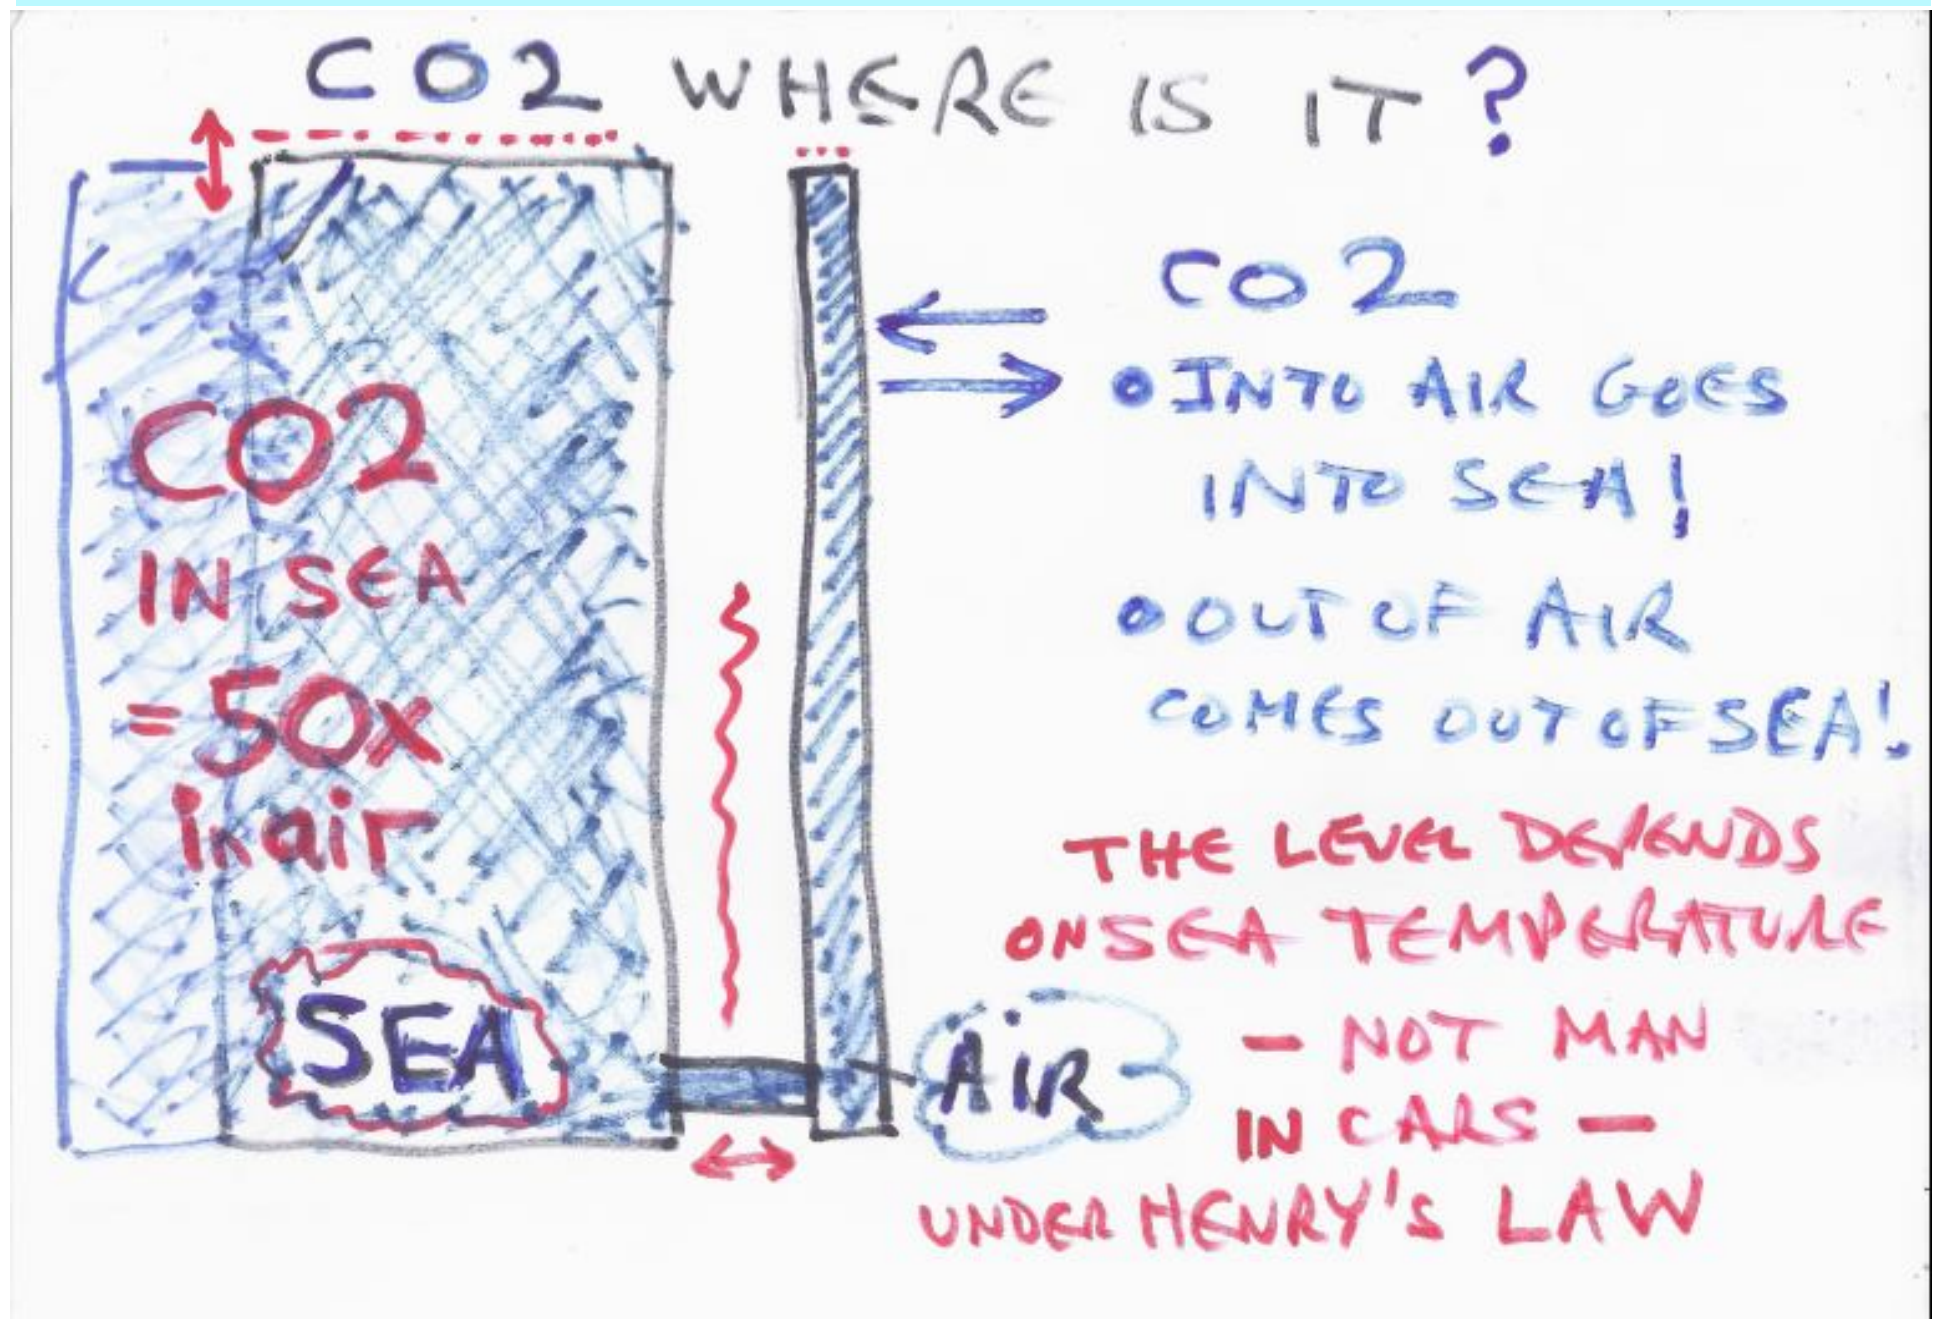 CO2 WHERE IS IT?
CO2
IN SEA
= 50x
in air
SEA
AIR
CO2
• INTO AIR GOES
INTO SEA!
• OUT OF AIR
COMES OUT OF SEA!
THE LEVEL DEPENDS
ON SEA TEMPERATURE
— NOT MAN
IN CARS —
UNDER HENRY'S LAW